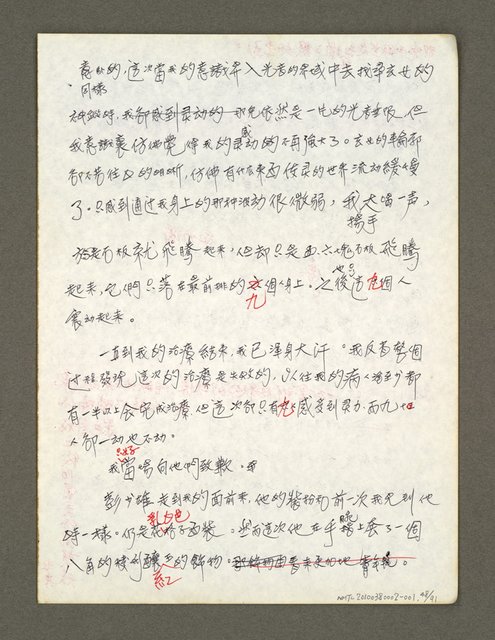 意外的,這次當我的意識昇入光音的界域中去找尋玄女的
同樣
神蹤時,我卻感到靈動的 依然是一片的光音無限,但
我意識裏仿佛覺得我的靈動的感不再強大了。玄女的輪廓
卻不若往日的明晰,仿佛有什麼東西使靈的世界流動緩慢
了。只感到通過我身上的那種波動很微弱,我大喝一声,
揚手
於是石板就飛騰起來,但却只是五、六塊石板飛騰
起來,它們只落在最前排的九個人身上。之後,也只這九個人
震動起來。
一直到我的治療結束,我已渾身大汗。我反省整個
過程發現這次的治療是失敗的,以往我的病人至少都
有一半以上會完成治療,但這次卻只有九人感受到灵力,而九十
人卻一動也不動。
我只好當場向他們致歉。
彭少雄走到我的面前來,他的裝扮和前一次我見到他
時一樣。仍是 乳白色 西裝。然而這次他在手腕上套了一個
八角的特別釀紅的飾物。
NMTL20100380002-001, 48/91